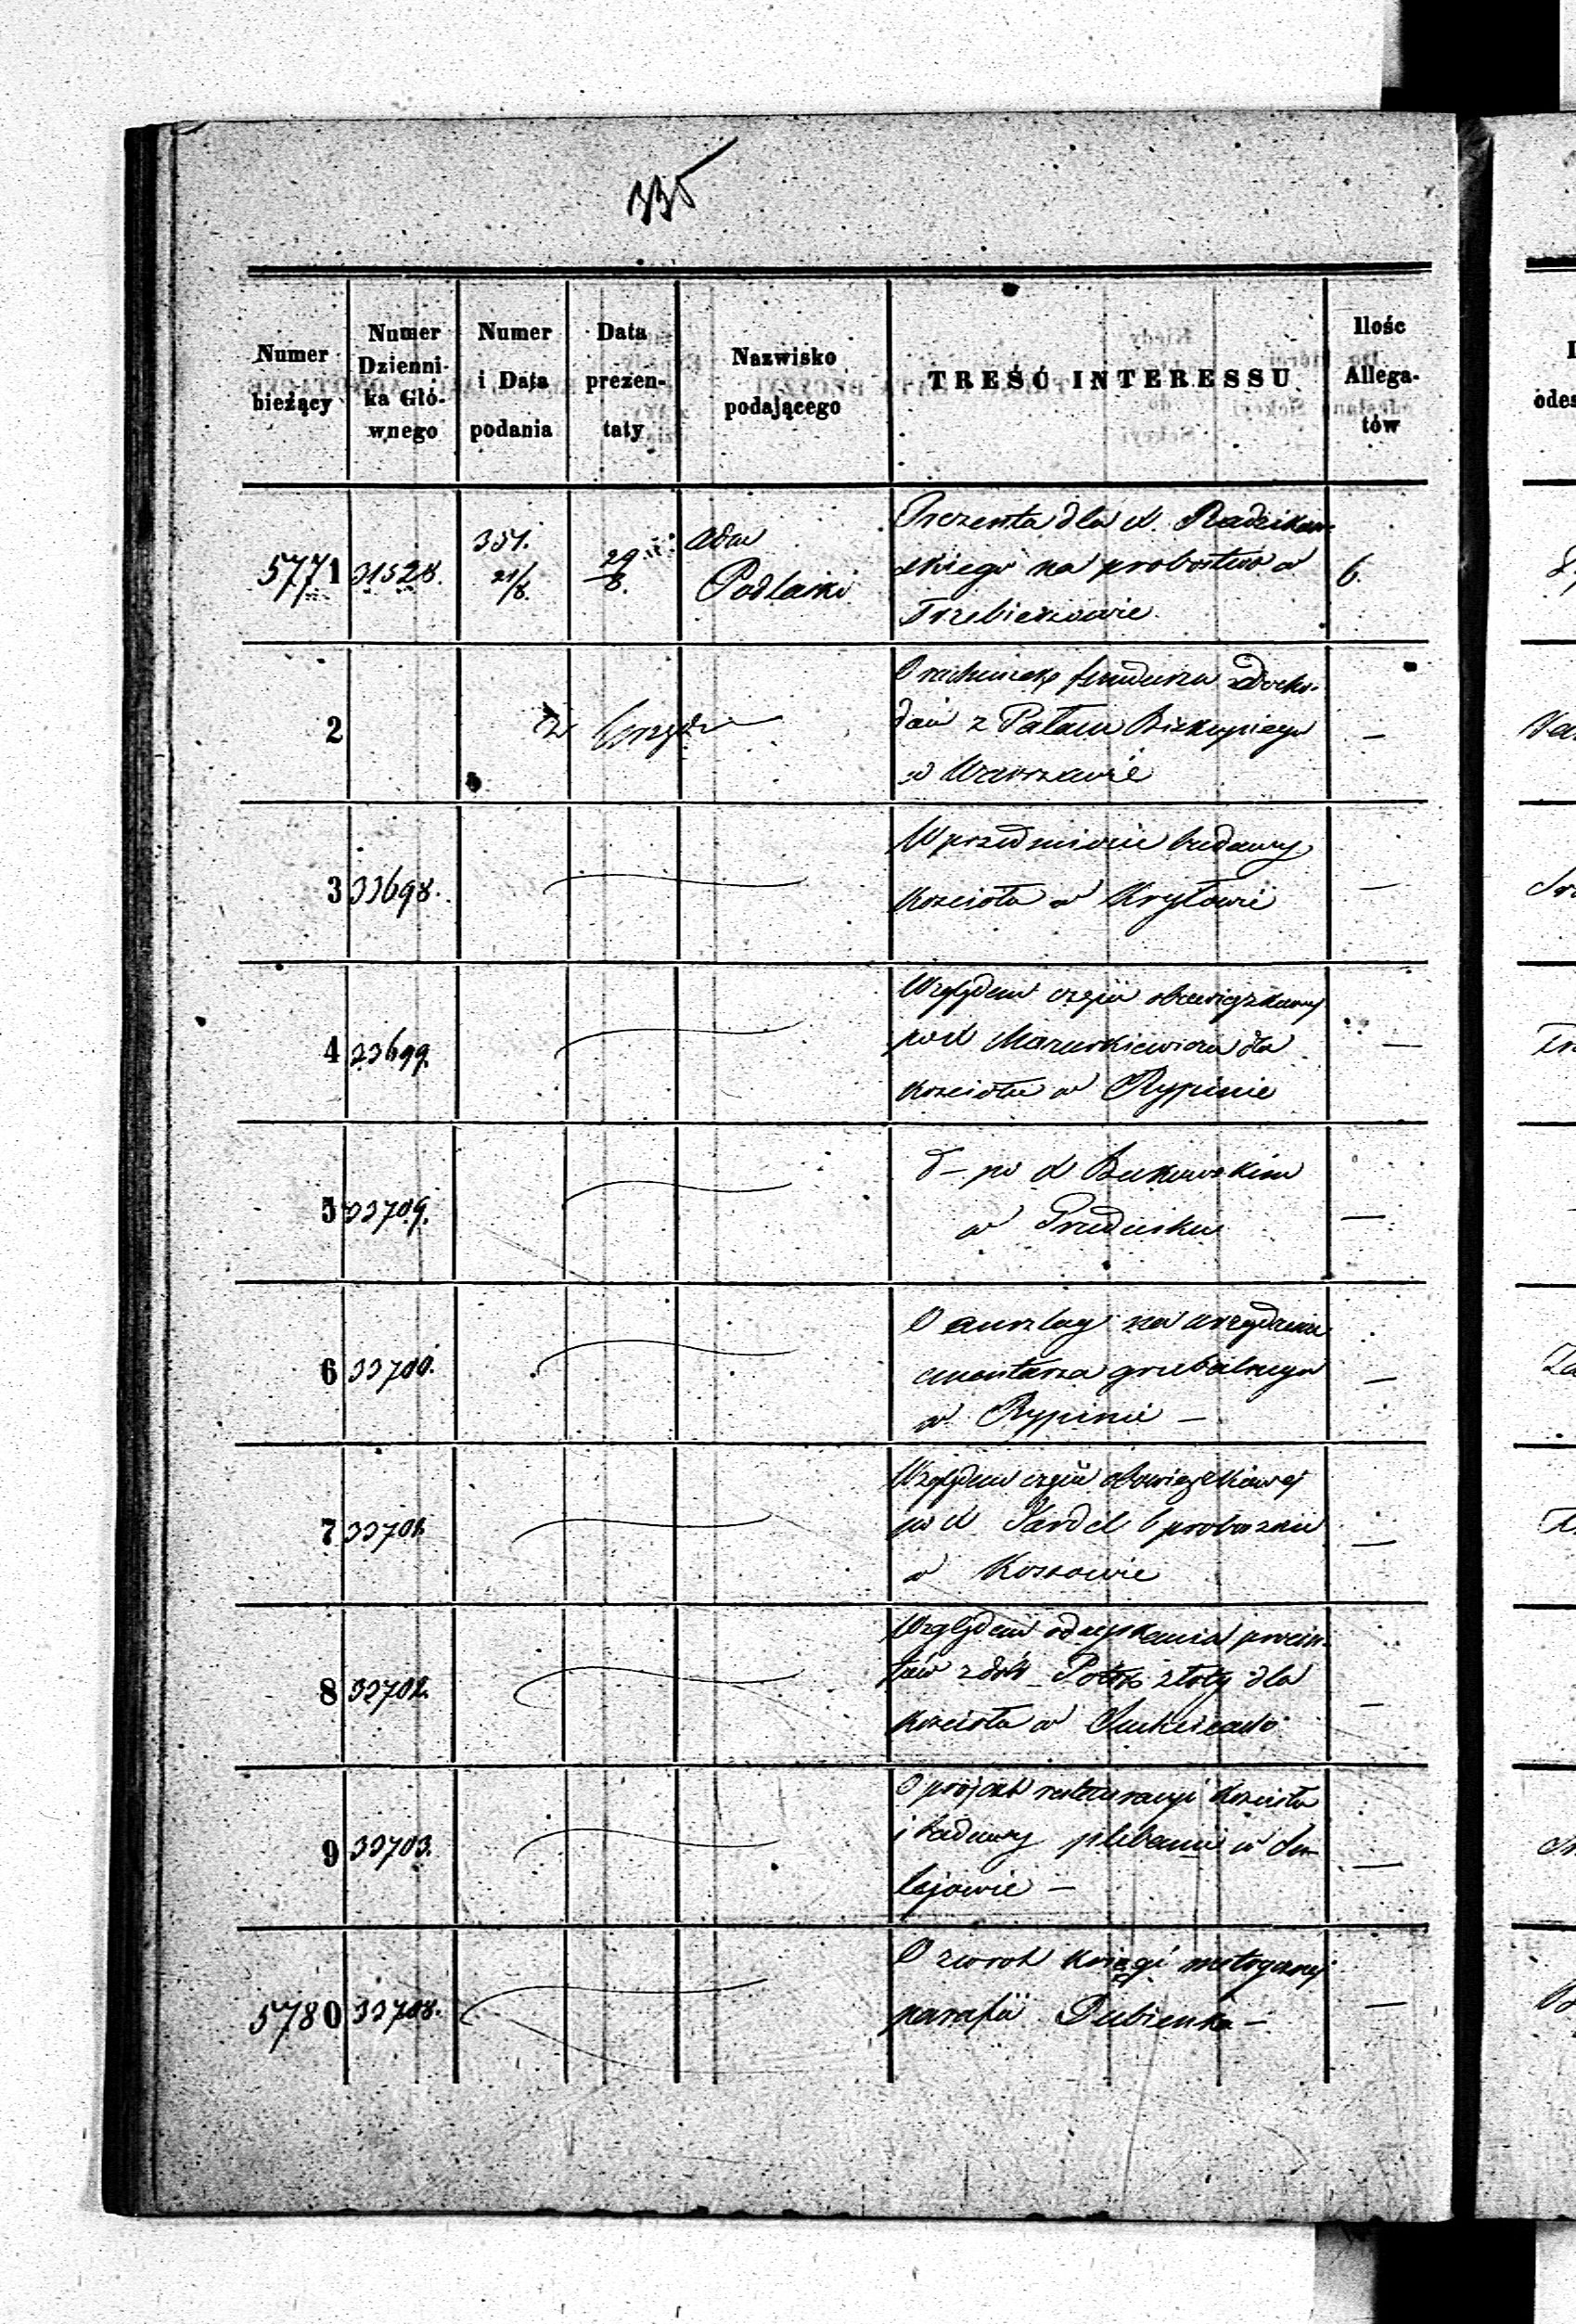 335
Numer bieżący
Numer Dzienni- ka Głó- wnego
Numer i Data podania
Data prezen- taty
Nazwisko podającego
TREŚĆ INTERESSU
Ilośc Allega- tów
5771 31528. 351. 21/8. 29/8. Adm Podlaski
Prezenta dla X. Radzikow-
skiego na probostwo w 6.
Trzebieszowie
2 Z Urzędu
O rachunek funduszu z Docho-
dów z Pałacu Biskupiego —
w Warszawie
3 33698.
W przedmiocie budowy —
kościoła w Kryłowie
4 33699.
Względem części obowiązkowej
po X Mazurkiewiczu dla —
kościoła w Rypinie
5 33709.
d— po X Bukowskim
w —
6 33700.
O na urządzenie
cmentarza grzebalnego —
w Rypinie —
7 33701.
Względem części obowiązkowej
po X b proboszczu —
w Kossowie
8 33702.
Względem odzyskania procen-
tów z dóbr Potok złoty dla
kościoła w —
9 33703.
O projekt restauracyi kościoła
i budowy plebanii w Su- —
lejowie —
5780 33708.
O zwrot księgi metrycznej
parafii Dubienka — —